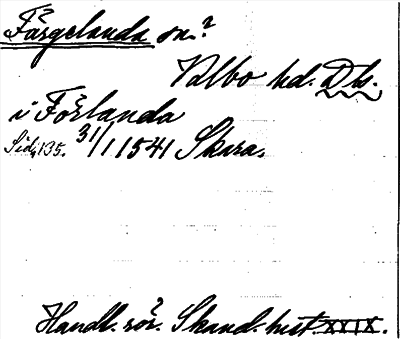 Färgelanda sn.?
Valbo hd. Ds.
i Förlanda
Sid. 135. 31/1 1541 Skara.
Handl. rör. Skand. hist. XXIX.